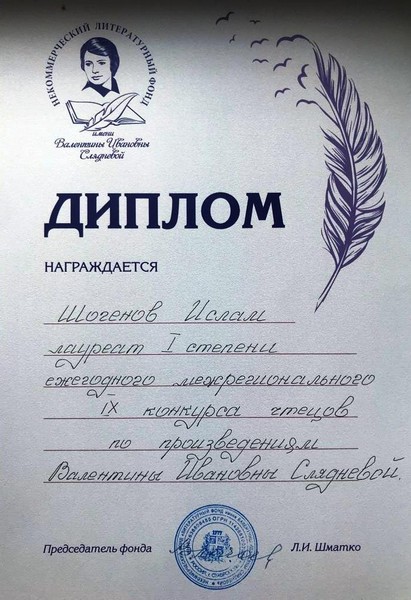 НЕКОММЕРЧЕСКИЙ ЛИТЕРАТУРНЫЙ ФОНД
имени
Валентины Ивановны
Слядневой
ДИПЛОМ
НАГРАЖДАЕТСЯ
Шогенов Ислам
лауреат I степени
ежегодного межрегионального
IX конкурса чтецов
по произведениям
Валентины Ивановны Слядневой.
Председатель фонда
Л.И. Шматко